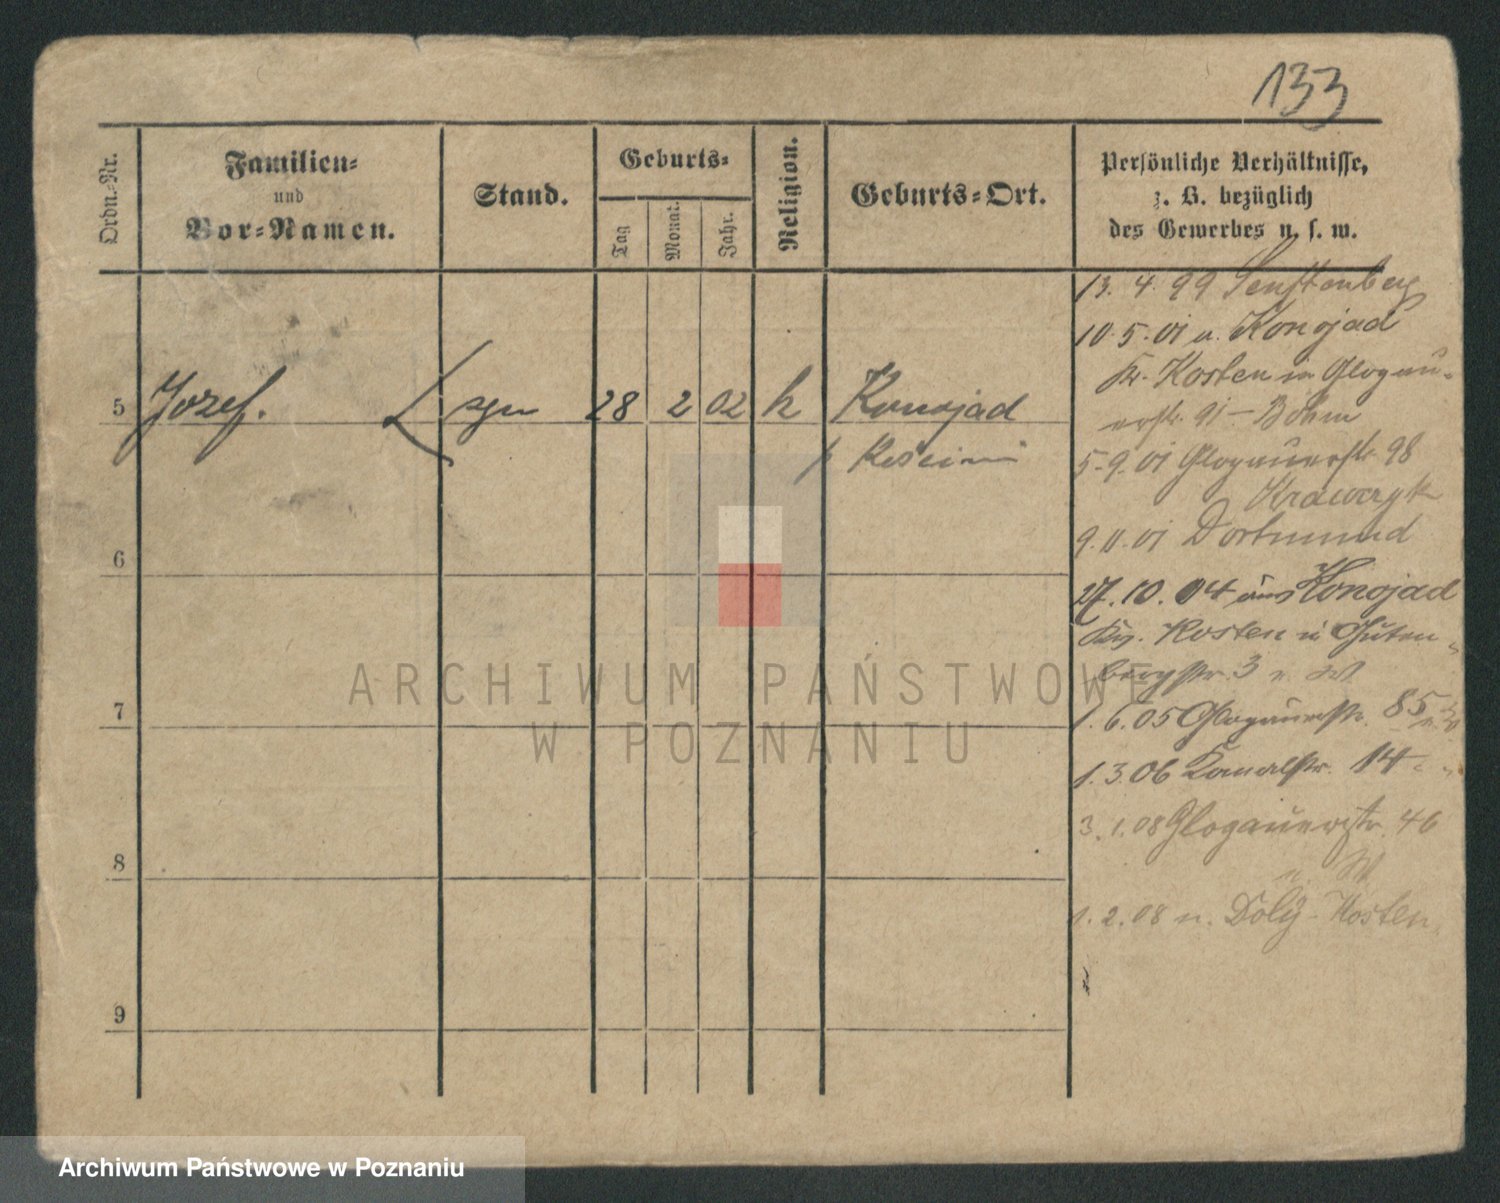 133
Ordn.-Nr.
Familien-
und
Vor-Namen.
Stand.
Geburts-
Tag
Monat.
Jahr.
Religion.
Geburts-Ort.
Persönliche Verhältnisse,
z. B. bezüglich
des Gewerbes u. s. w.
13. 4. 99 Senftenberg
10. 5. 01 a. Konojad
Kr. Kosten in Glogau-
erstr. 91 - Böhm
5 Jozef. 28 2 02 k Konojad
5. 9. 01 Glogauerstr. 98
Krawczyk
9. 11. 01 Dortmund
6
27. 10. 04 aus Konojad
Kr. Kosten in Guten-
bergstr. 3
7
1. 6. 05 Glogauerstr. 85
1. 3. 06 Kanalstr. 14
3. 1. 08 Glogauerstr. 46
8
1. 2. 08 n. Kosten
9
ARCHIWUM PAŃSTWOWE
W POZNANIU
Archiwum Państwowe w Poznaniu